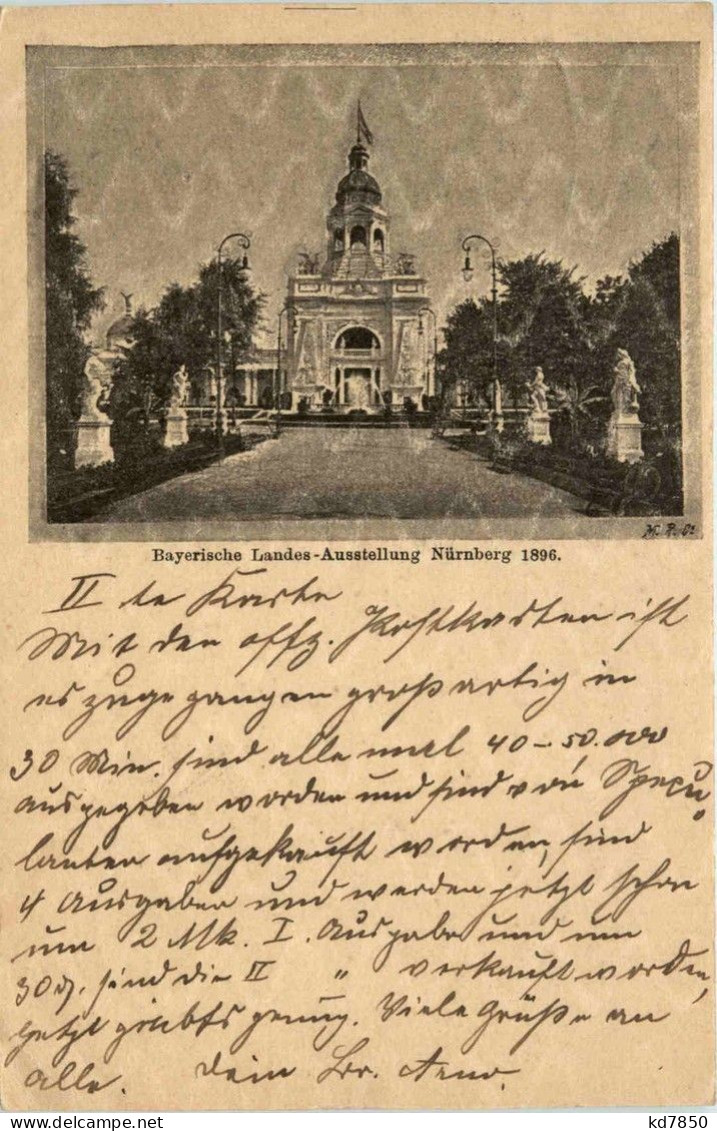 M. R. Dr.
Bayerische Landes-Ausstellung Nürnberg 1896.
II te Karte
Mit den offz. Postkarten ist
es zuge gangen großartig in
30 Min. sind alle mal 40-50.000
ausgegeben worden und sind von Specu
lanten aufgekauft worden, sind
4 Ausgaben und werden jetzt schon
um 2 Mk. I. Ausgabe und um
30 ₰. sind die II " verkauft worden,
jetzt giebts genug. Viele Grüße an
alle. Dein Br. Arno.
kd7850